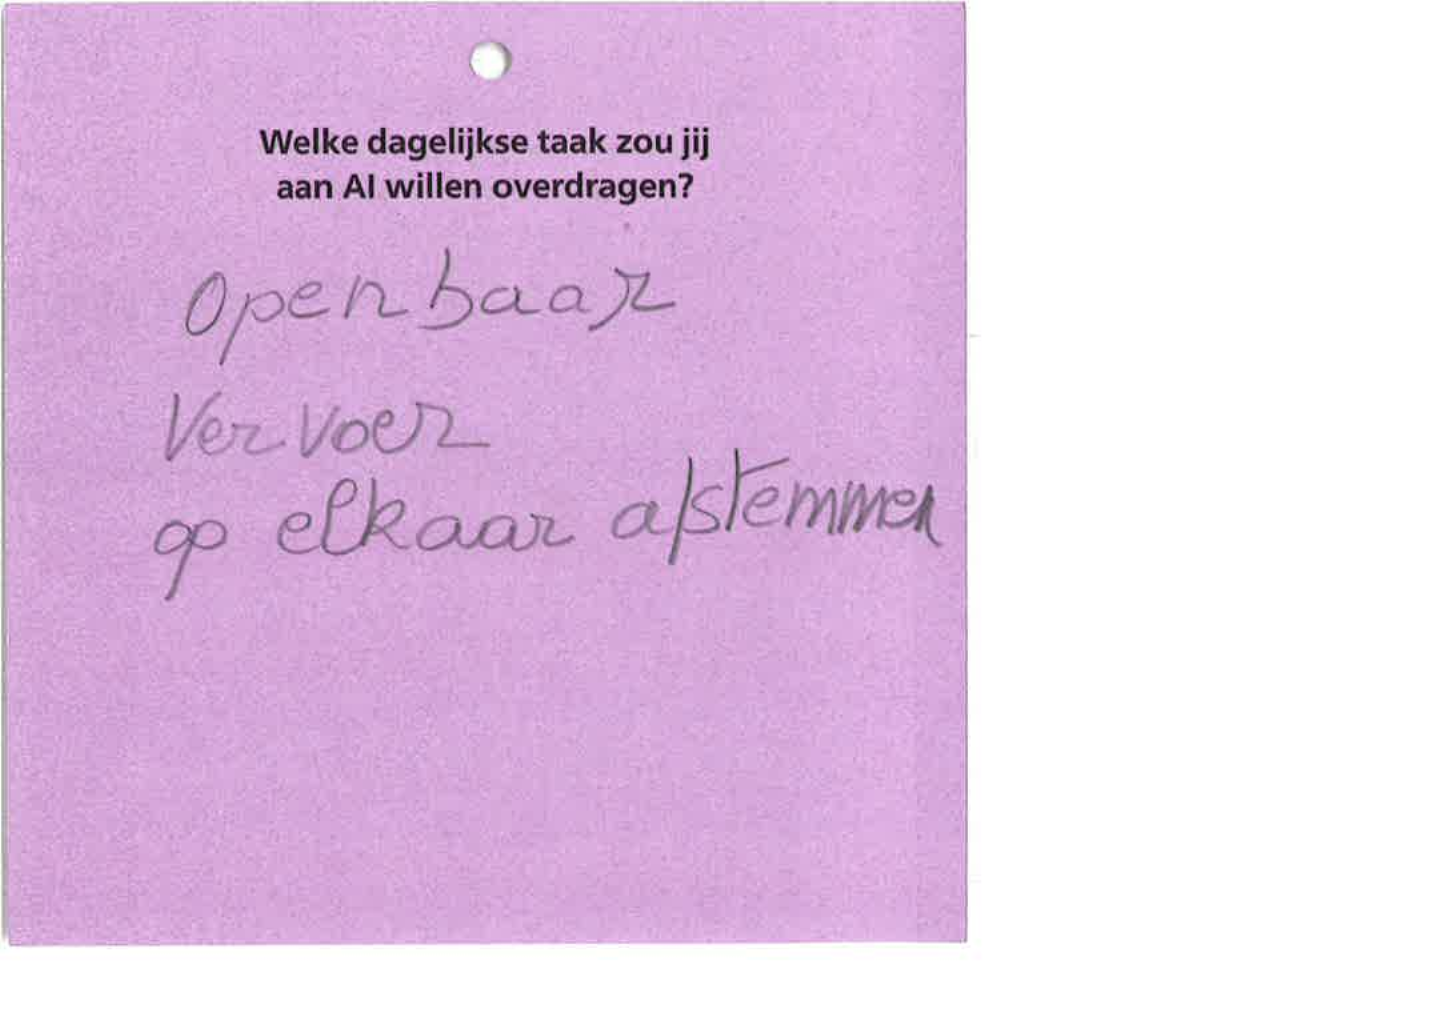 Welke dagelijkse taak zou jij
aan AI willen overdragen?
Openbaar
Vervoer
op elkaar afstemmen